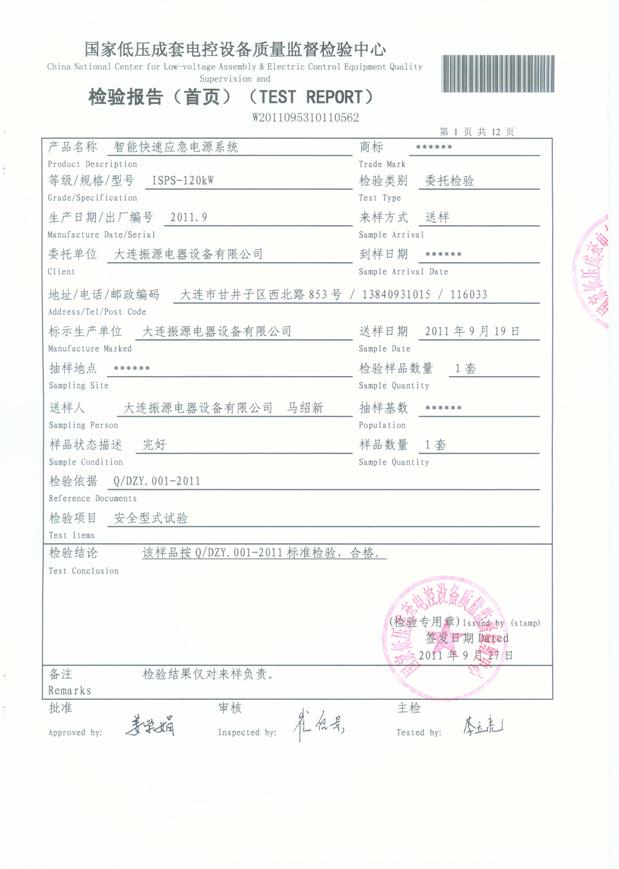 国家低压成套电控设备质量监督检验中心
China National Center for Low-voltage Assembly & Electric Control Equipment Quality
Supervision and
检验报告（首页）（TEST REPORT）
W2011095310110562
第 1 页 共 12 页
产品名称 智能快速应急电源系统 商标 ******
Product Description Trade Mark
等级/规格/型号 ISPS-120kW 检验类别 委托检验
Grade/Specification Test Type
生产日期/出厂编号 2011.9 来样方式 送样
Manufacture Date/Serial Sample Arrival
委托单位 大连振源电器设备有限公司 到样日期 ******
Client Sample Arrival Date
地址/电话/邮政编码 大连市甘井子区西北路 853 号 / 13840931015 / 116033
Address/Tel/Post Code
标示生产单位 大连振源电器设备有限公司 送样日期 2011 年 9 月 19 日
Manufacture Marked Sample Date
抽样地点 ****** 检验样品数量 1 套
Sampling Site Sample Quantity
送样人 大连振源电器设备有限公司 马绍新 抽样基数 ******
Sampling Person Population
样品状态描述 完好 样品数量 1 套
Sample Condition Sample Quantity
检验依据 Q/DZY.001-2011
Reference Documents
检验项目 安全型式试验
Test Items
检验结论 该样品按 Q/DZY.001-2011 标准检验，合格。
Test Conclusion
(检验专用章) Issued by (stamp)
签发日期 Dated
2011 年 9 月 27 日
备注 检验结果仅对来样负责。
Remarks
批准 审核 主检
Approved by: Inspected by: Tested by: 李立亮